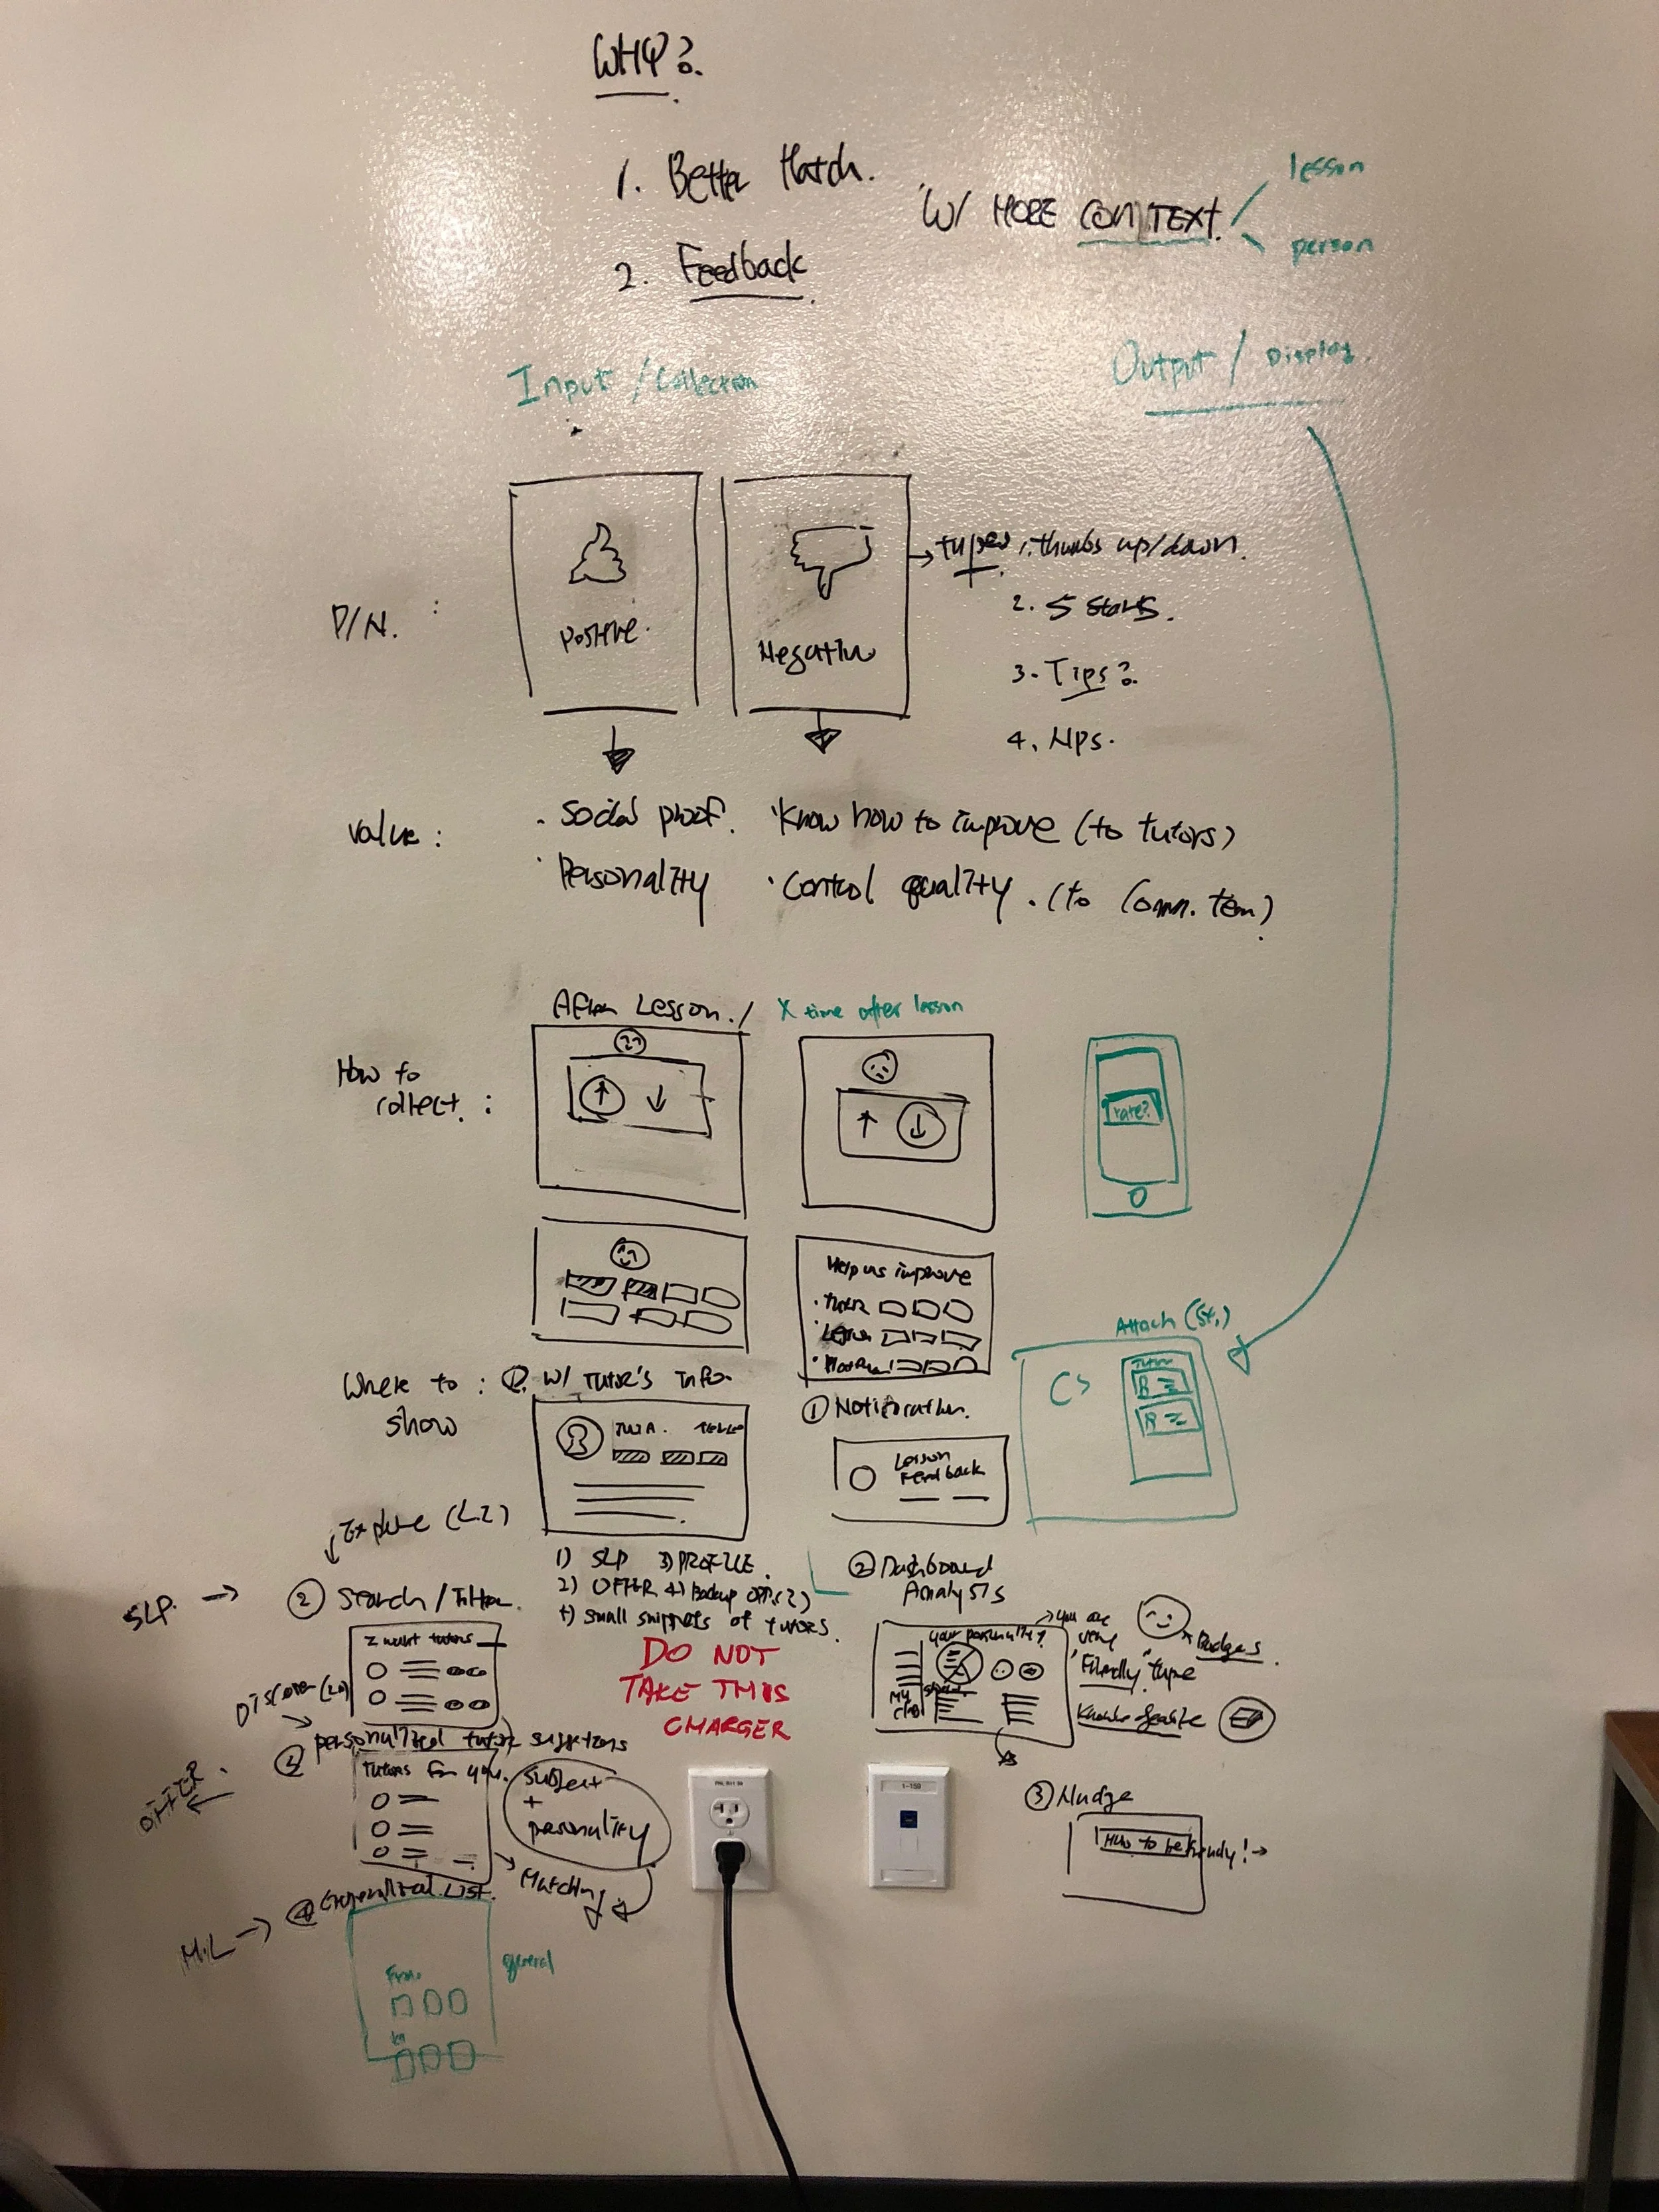 WHY?
1. Better Match.
2. Feedback
W/ MORE CONTEXT.
lesson
person
Input / Collection
Output / Display.
P/N. :
Positive.
Negative
types 1. thumbs up/down.
2. 5 stars.
3. Tips?
4. NPS.
Value :
· Social proof.
· Personality
· Know how to improve (to tutors)
· Control quality. (to Comm. team)
After Lesson. / X time after lesson
How to collect. :
rate?
Help us improve
· Tutor
· Lesson
·
Attach (St.)
Where to show :
W/ Tutor's Info.
① Notification.
Lesson Feedback
Explore (L2)
1) SLP 3) PROFILE.
2) OFFER 4) Backup
+) small snippets of tutors.
② Dashboard Analysis
SLP →
② Search / Filter.
I want tutors
your personality?
you are very "Friendly" type
Badges
Discover
③ personalized tutor
Tutors for you.
subject + personality
Matching
OFFER.
DO NOT
TAKE THIS
CHARGER
③ Nudge
How to be friendly!
④ Generalized List.
M.L →
general
1-159